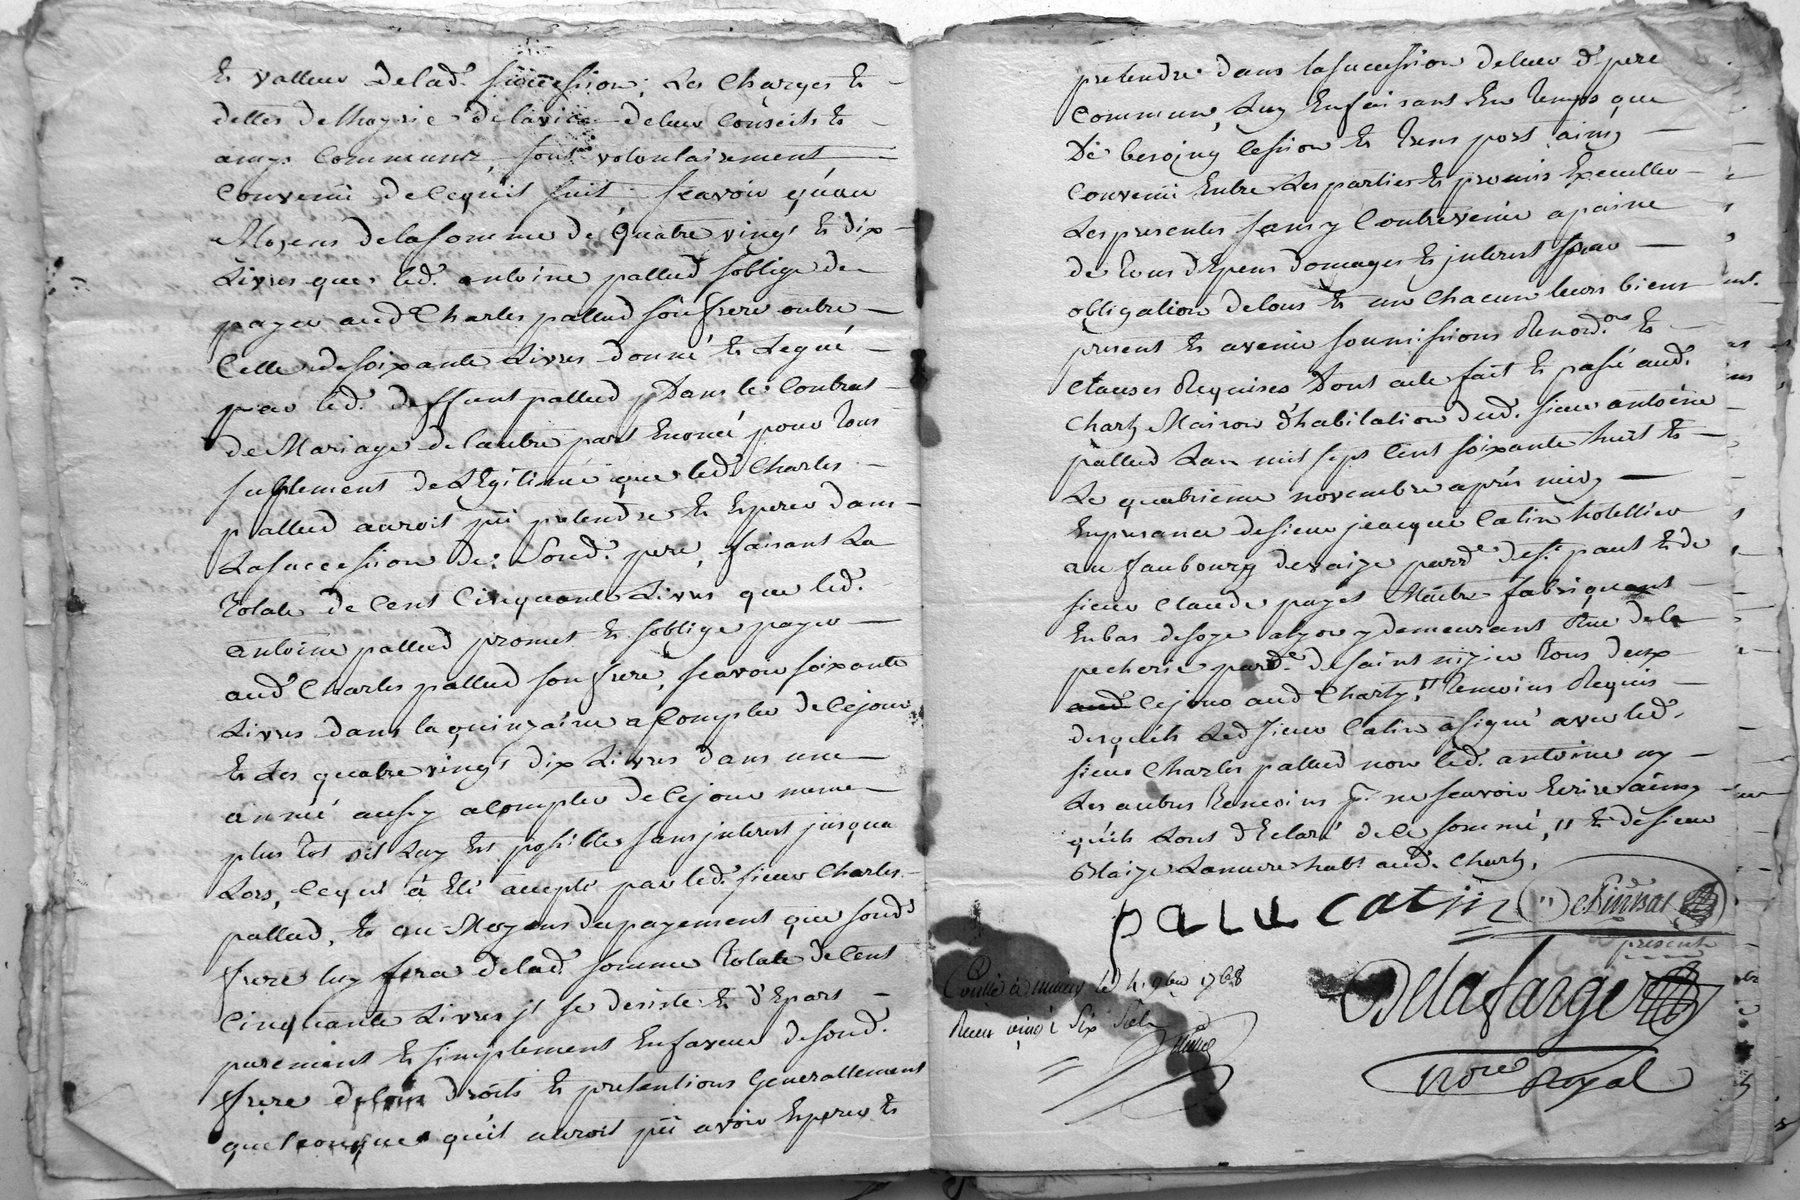 et valleur de lad. succession, les charges et
dettes d'hoyrie de l'avice de leur conseils et
amys communs, sont volontairement
convenu de ce qui suit, scavoir qu'au
moyens de la somme de quatre vingt et dix
livres que led. antoine pallud s'oblige de
payer aud. Charles pallud son frere outre
celle de soixante livres donné et legué
par led. deffunt pallud dans le contrat
de mariage de l'autre part enoncé pour tous
suplement de legitime que led. Charles
pallud auroit pû pretendre et esperer dans
la succession de sond. pere, faisant la
totale de cent cinquante livres que led.
antoine pallud promet et s'oblige payer
aud. Charles pallud son frere, scavoir soixante
livres dans la quinzaine a compter de ce jour
et les quatre vingt dix livres dans une
année aussy a compter de ce jour meme
plus tot sit luy est possible sans interest jusqua
lors, ce qui à eté accepté par led. sieur Charles
pallud, et au moyens du payement que sond.
frere luy fera de lad. somme totale de cent
cinquante livres jl se desiste et d'epars
purement et simplement en faveur de sond.
frere de tous droits et pretentions generallement
quelconques qu'il auroit pû avoir esperer et
pretendre dans la succession de leur d. pere
commun, luy en faisant en temps que
de besoing cession et trens port ainsy
convenu entre les parties et promis executter
les presentes sans y contrevenir a paine
de tous depens domages et interest sous
obligation de tous et un chacun leurs biens
present et avenir soumissions renond.ons et
clauses requises dont acte fait et passé aud.
Charly maison d'habitation dud. sieur antoine
pallud l'an mil sept cent soixante huit et
le quatrieme novembre après midy
en presance de sieur jeacque Catin hotellier
au faubourg de vaize parr.e de st. paul et de
sieur Claude payet maitre fabriquant
en bas de soye a lyon y demeurant rue de la
pecherie par.e de saint nizier tous deux
aud. ce jour aud. Charly, " temoins requis
desquels led sieur Catin à signé avec led.
sieur Charles pallud non led. antoine ny
les autres temoins p.r ne scavoir ecrire ainsy
qu'ils l'ont declaré de ce sommé, " et de sieur
Blaize hab.t aud. Charly.
palu catin
present
Delafarge
nore Royal
Conlle à le 4. 9bre 1768
Recu vingt six sols